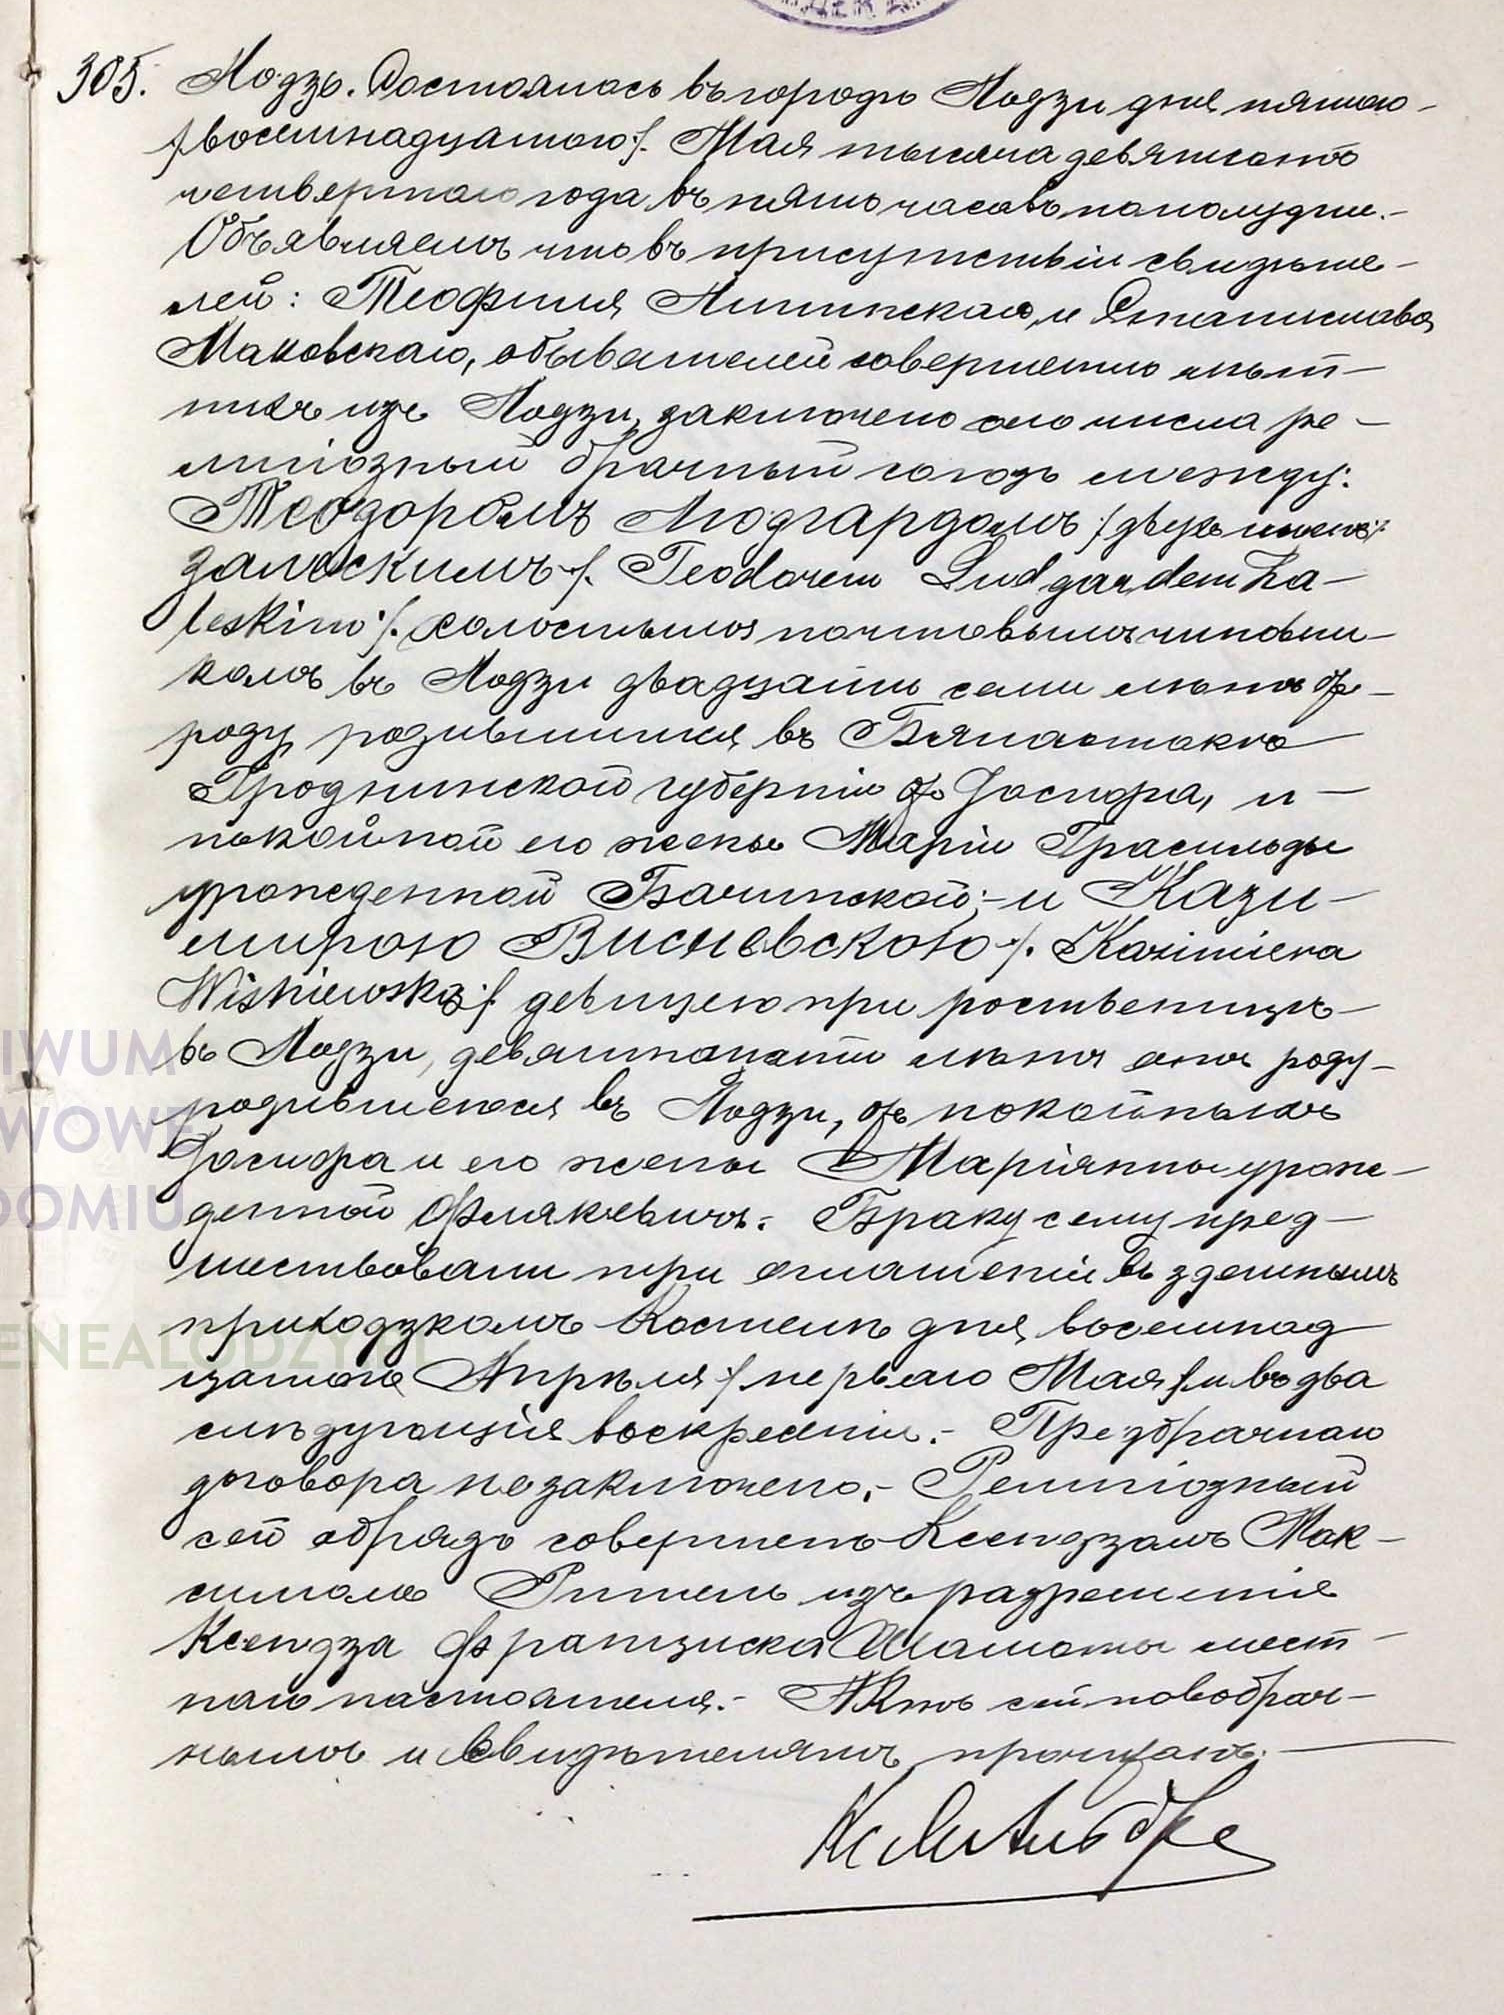 305. Лодзь. Состоялось въ городѣ Лодзи дня пятаго
/:восемнадцатаго:/ Мая тысяча девятьсотъ
четвертаго года въ пять часовъ пополудни.-
Объявляемъ что въ присутствіи свидѣте-
лей: Теофиля Липинскаго, и Станислава
Маковскаго, обывателей совершенно лѣт-
нихъ изъ Лодзи, заключено сего числа ре-
лигіозный брачный союзъ между:
Теодоромъ Людгардомъ /:двухъ именъ:/
Залескимъ /:Teodorem Ludgardem Za-
leskim:/ холостымъ почтовымъ чиновни-
комъ въ Лодзи двадцати семи лѣтъ отъ
роду, родившимся въ Бялостокѣ
Гродненской губерніи отъ Іосифа, и
покойной его жены Маріи Грасильды
урожденной Бачинской;- и Кази-
мирою Висневскою /:Kazimiera
Wiśniewska:/ девицею при родственницѣ
въ Лодзи, девятнацати лѣтъ отъ роду
родившеюся въ Лодзи, отъ покойныхъ
Іосифа и его жены Маріянны урож-
денной .- Браку сему пред-
шествовали три оглашенія въ здешнымъ
приходзкомъ Костелѣ дня восемнад
цатаго Апрѣля /:перваго Мая:/ и въ два
слѣдующія воскресенія.- Предбрачнаго
договора не заключено.- Религіозный
сей обрядъ совершенъ Ксендзомъ Мак-
симомъ изъ разрешенія
Ксендза Францишка Шамоты мест-
наго настоятеля.- Актъ сей новобрач-
нымъ и свидѣтелямъ прочитанъ.